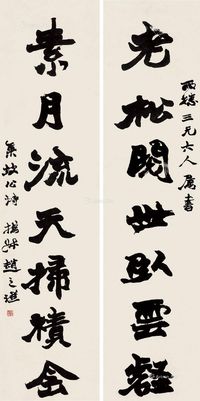 老松閱世臥雲壑
西緣三兄大人屬書
素月流天掃積陰
集坡公詩 撝叔趙之謙